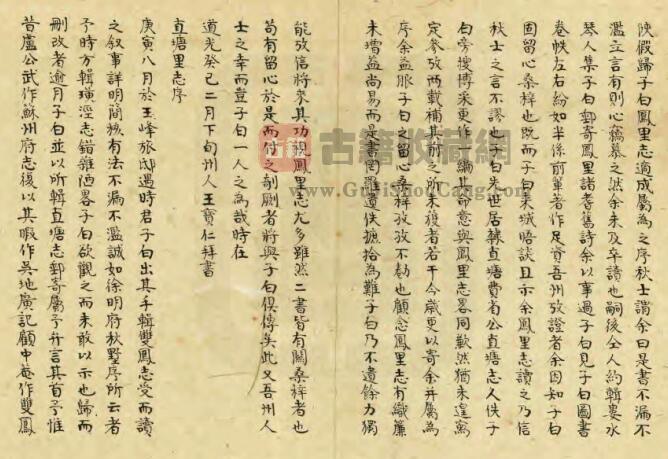 陝假歸子白志適成屬為之序秋士謂余曰是書不漏不
濫立言有則心竊慕之然余未及卒讀也嗣後仝人約輯婁水
琴人集子白郵寄鳳里諸耆舊詩余以事過子白見子白圖書
卷帙左右紛如半係前輩著作足資吾州攷證者余因知子白
固留心桑梓也既而子白來城晤談且示余鳳里志讀之乃信
秋士之言不謬也子白來世居隸直塘費省公直塘志人佚子
白旁搜博采更作一編郵意與鳳里志畧同歉然猶未遑寫
定參攷兩載補其所之所未獲者若干今歲更以寄余并屬為
序余益服子白之留心桑梓孜孜不勌也顧念鳳里志有織簾
未瓚益尚易而是書罔羅遺佚摭拾為難子白乃不遺餘力獨
能攷信將來其功視鳳里志尤多雖然二書皆有關桑梓者也
苟有留心於是而付之剞劂者將與子白俱傳矣此又吾州人
士之幸而豈子白一人之為哉時在
道光癸巳二月下旬州人王寶仁拜書
直塘里志序
庚寅八月於玉峰張邸遇時君子白出其手輯雙鳳志受而讀
之叙事詳明簡核有法不漏不濫誠如徐明府秋墅序所云者
予時方輯璜涇志錯雜陋畧子白欲觀之而未敢以示也歸而
刪改者逾月子白並以所輯直塘志郵寄屬予弁言其首予惟
昔盧公武作蘇州府志復以其暇作吳地廣記顧中菴作雙鳳
古籍收藏網
www.GujiShouCang.com